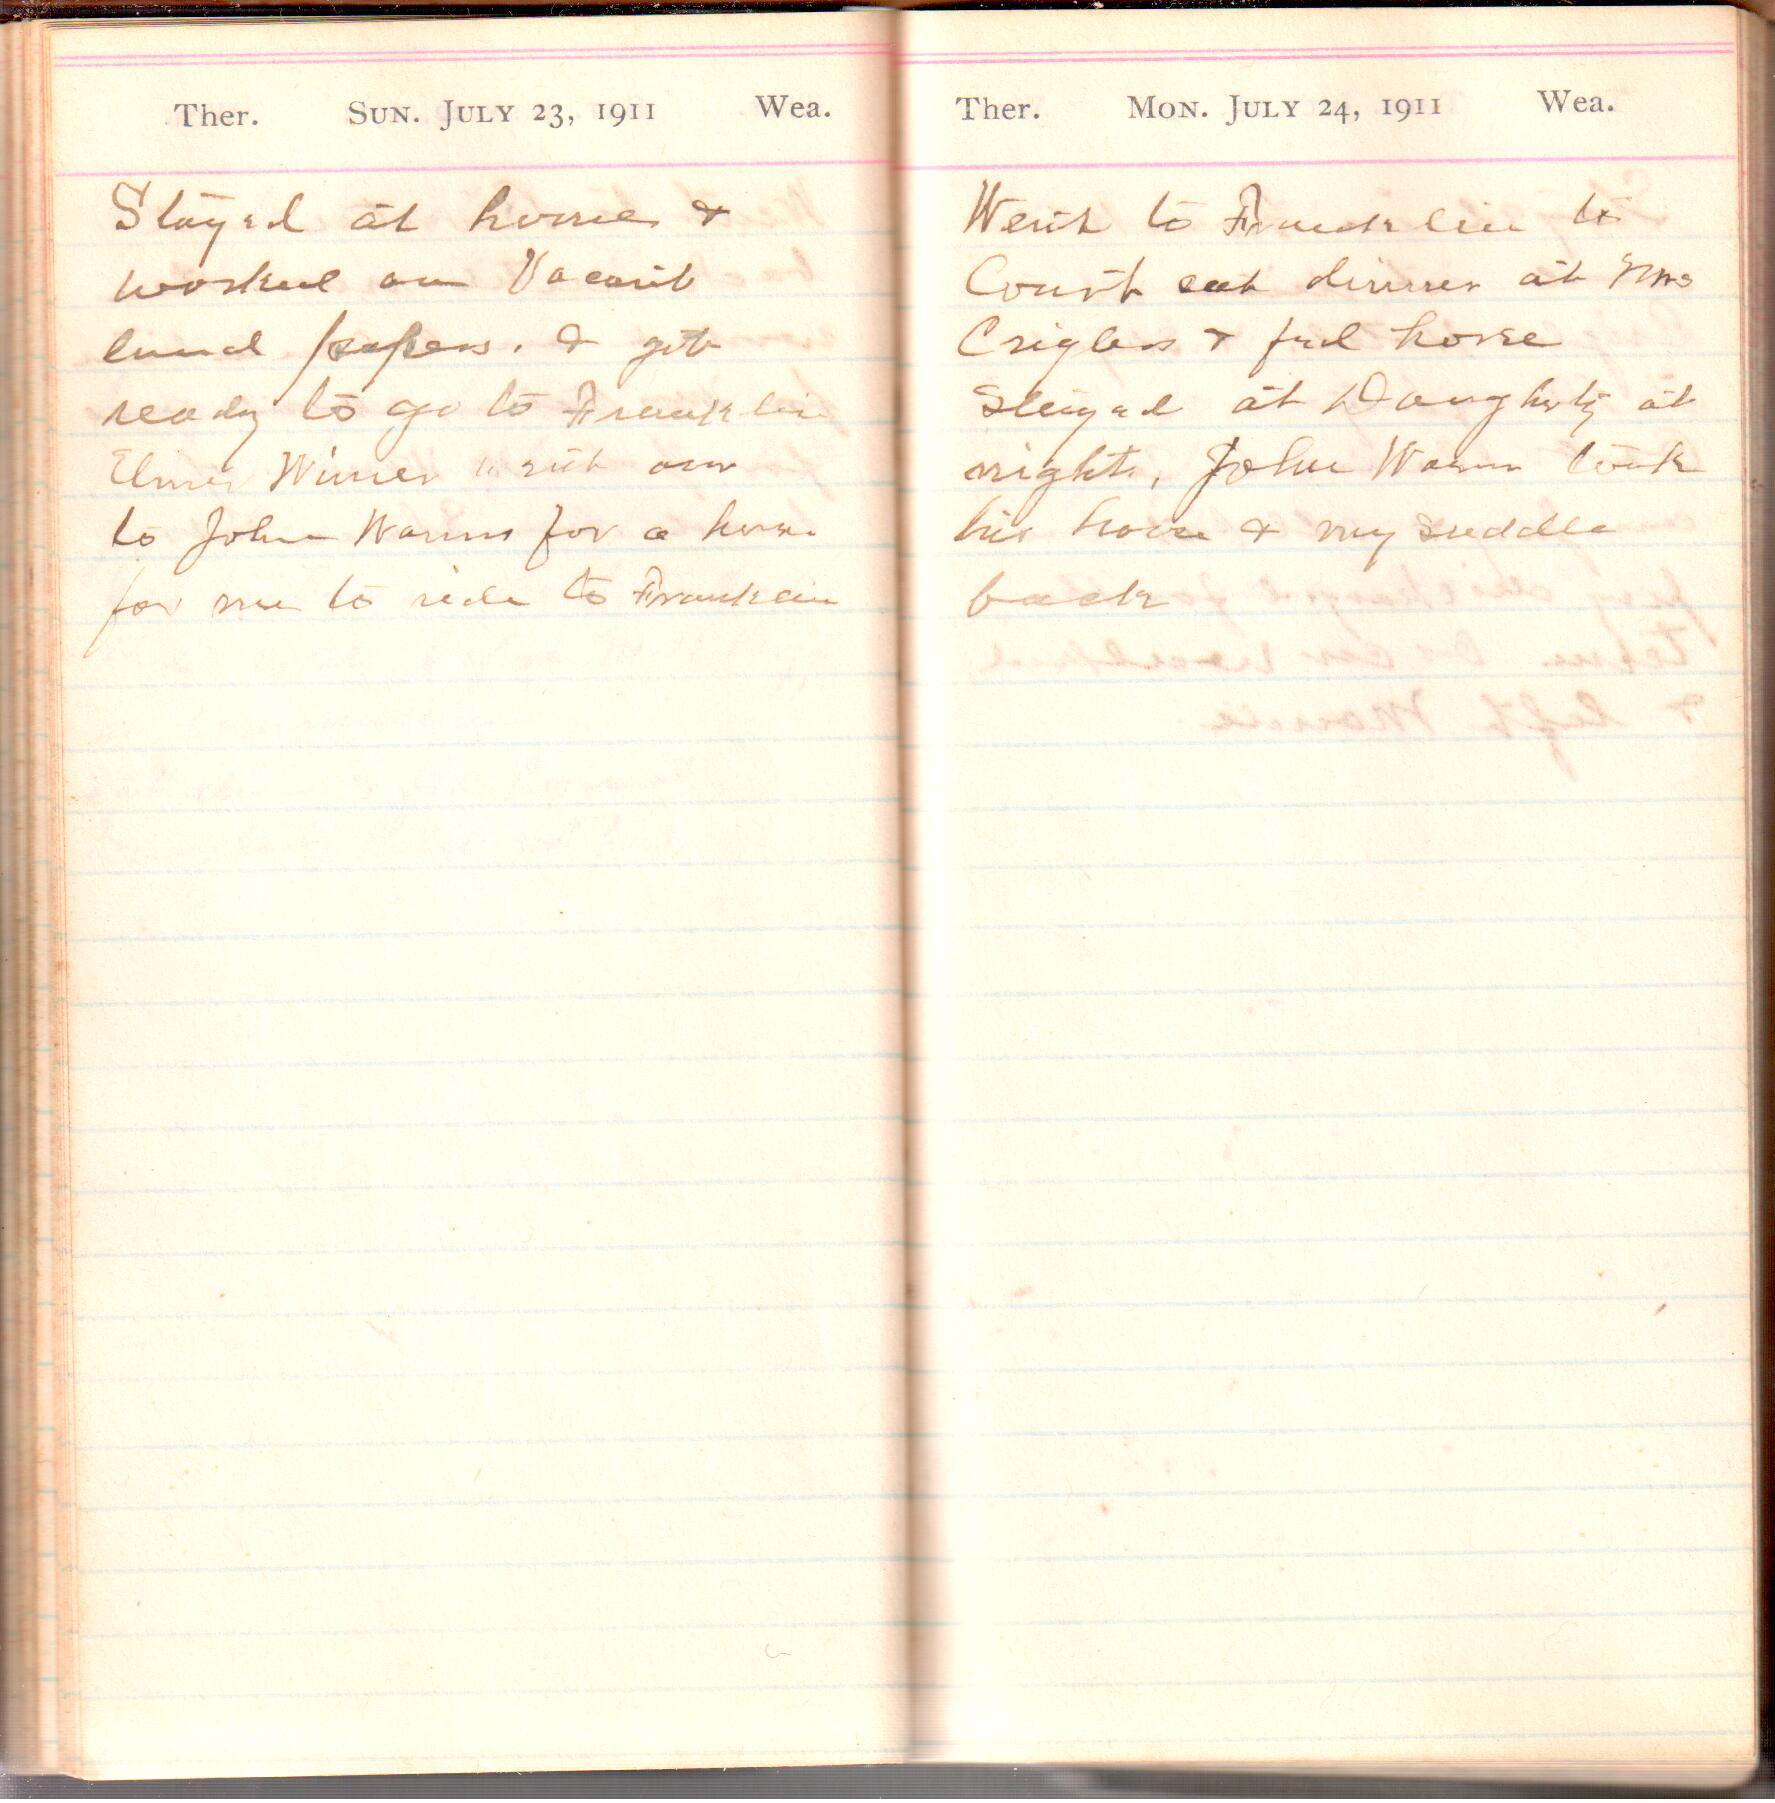 Ther. Sun. July 23, 1911 Wea.
Stayed at home &
worked on Vacant
land papers. & got
ready to go to Franklin
Elmer Wimer went over
to John Warms for a horse
for me to ride to Franklin
Ther. Mon. July 24, 1911 Wea.
Went to Franklin to
Court eat dinner at Mrs
Criglers & fed horse
Stayed at Daugherty at
night, John Warm took
his horse & my saddle
back